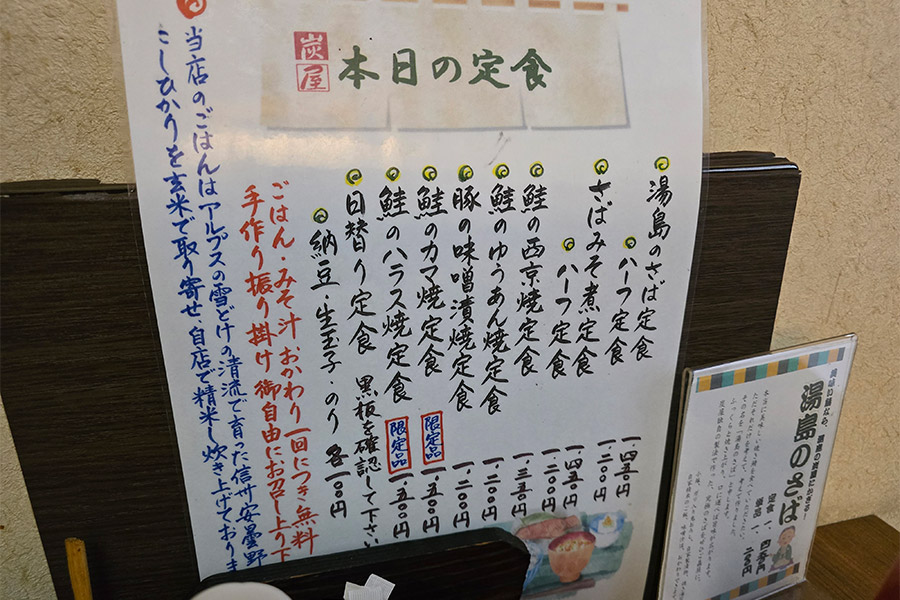 炭屋
本日の定食
湯島のさば定食 一、四五〇円
ハーフ定食 一、二〇〇円
さばみそ煮定食 一、四五〇円
ハーフ定食 一、二〇〇円
鮭の西京焼定食 一、三五〇円
鮭のゆうあん焼定食 一、二〇〇円
豚の味噌漬焼定食 一、二〇〇円
鮭のカマ焼定食 限定品 一、五〇〇円
鮭のハラス焼定食 限定品 一、五〇〇円
日替り定食 黒板を確認して下さい
納豆・生玉子・のり 各一〇〇円
ごはん・みそ汁おかわり一回につき無料
手作り振り掛け御自由にお召し上り下
当店のごはんはアルプスの雪どけの清流で育った信州安曇野
こしひかりを玄米で取り寄せ、自店で精米し炊き上げておりま
湯島のさば
定食
単品